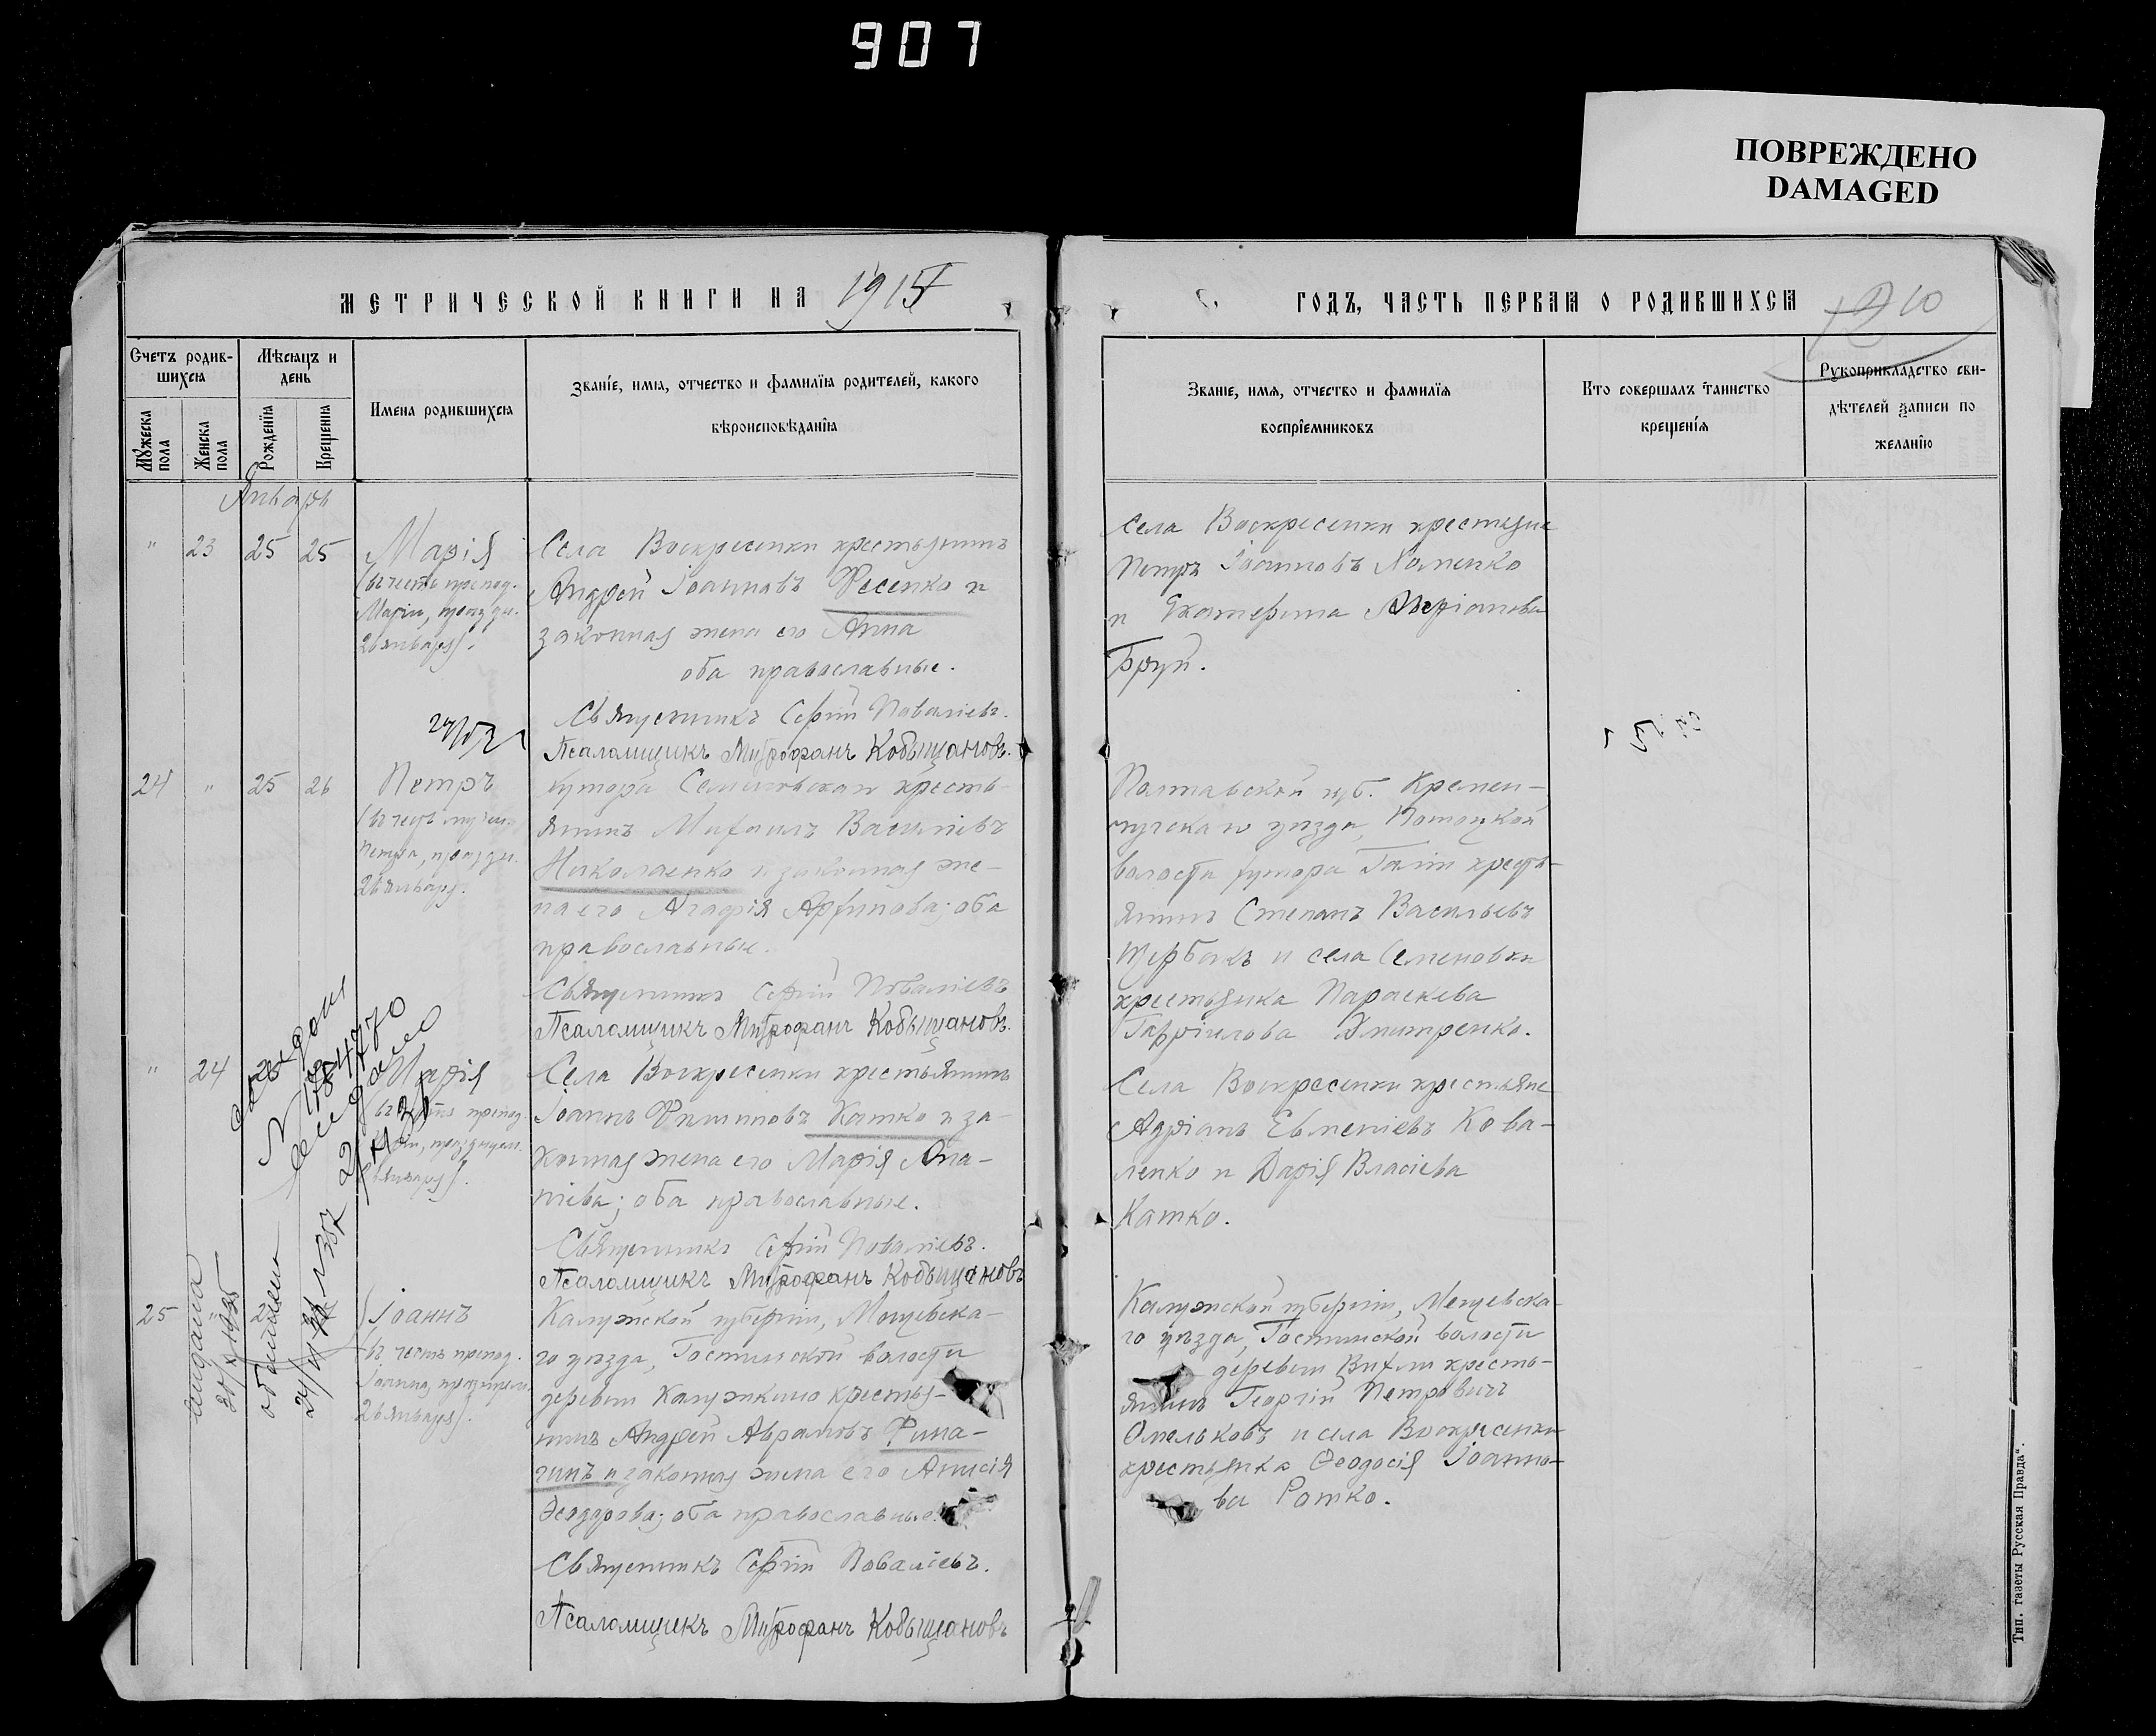 907
ПОВРЕЖДЕНО
DAMAGED
МЕТРИЧЕСКОЙ КНИГИ НА 1915
ГОДЪ, ЧАСТЬ ПЕРВАЯ О РОДИВШИХСЯ
Счетъ родив-
шихся
Мѣсяцъ и
день
Мужеска
пола
Женска
пола
Рожденїя
Крещенїя
Имена родившихся
Званїе, имя, отчество и фамилїя родителей, какого
вѣроисповѣданїя
Званїе, имя, отчество и фамилїя
воспрїемниковъ
Кто совершалъ таинство
крещенїя
Рукоприкладство сви-
дѣтелей записи по
желанїю
Январь
" 23 25 25
Марія
(въ честь препод.
Маріи, празди.
26 января).
Села Воскресенки крестьянинъ
Андрей Іоанновъ Фесенко и
законная жена его Анна
оба православные.
Священникъ Сергій Поваліевъ.
Псаломщикъ Митрофанъ Кобыщановъ.
Села Воскресенки крестьяне
Петръ Іоанновъ Хоменко
и Екатерина
Бруй.
24 " 25 26
Петръ
Петра, празди.
26 январ.
хутора крестья-
янинъ Михаилъ Василіевъ
Николаенко и законная же-
на его Агафія Архипова; оба
православные.
Священникъ Сергій Поваліевъ
Псаломщикъ Митрофанъ Кобыщановъ.
Полтавской губ. Кремен-
чугскаго уѣзда, Потоцкой
волости хутора крестья-
янинъ Степанъ Васильевъ
Щербакъ и села Семеновки
крестьянка Параскева
Гавріилова Дмитренко.
" 24
Марія
Села Воскресенки крестьянинъ
Іоаннъ Филипповъ Катко и за-
конная жена его Марія Ана-
ніева; оба православные.
Священникъ Сергій Поваліевъ.
Псаломщикъ Митрофанъ Кобыщановъ
Села Воскресенки крестьяне
Адріанъ Евменіевъ Кова-
ленко и Дарія Власіева
Катко.
25 "
Іоаннъ
(въ честь препод.
Іоанна,
26 января).
Калужской губерніи, Мещевска-
го уѣзда, Гостинской волости
деревни Калужкино крестья-
нинъ Андрей Аврамовъ Фина-
гинъ и законная жена его Анисія
Ѳеодорова; оба православные.
Священникъ Сергій Поваліевъ.
Псаломщикъ Митрофанъ Кобыщановъ
Калужской губерніи, Мещевска-
го уѣзда, Гостинской волости
деревни крестья-
янинъ Георгій Петровичъ
Омельковъ и села Воскресенки
крестьянка Ѳеодосія Іоанно-
ва Ротко.
Тип. газеты „Русская Правда".